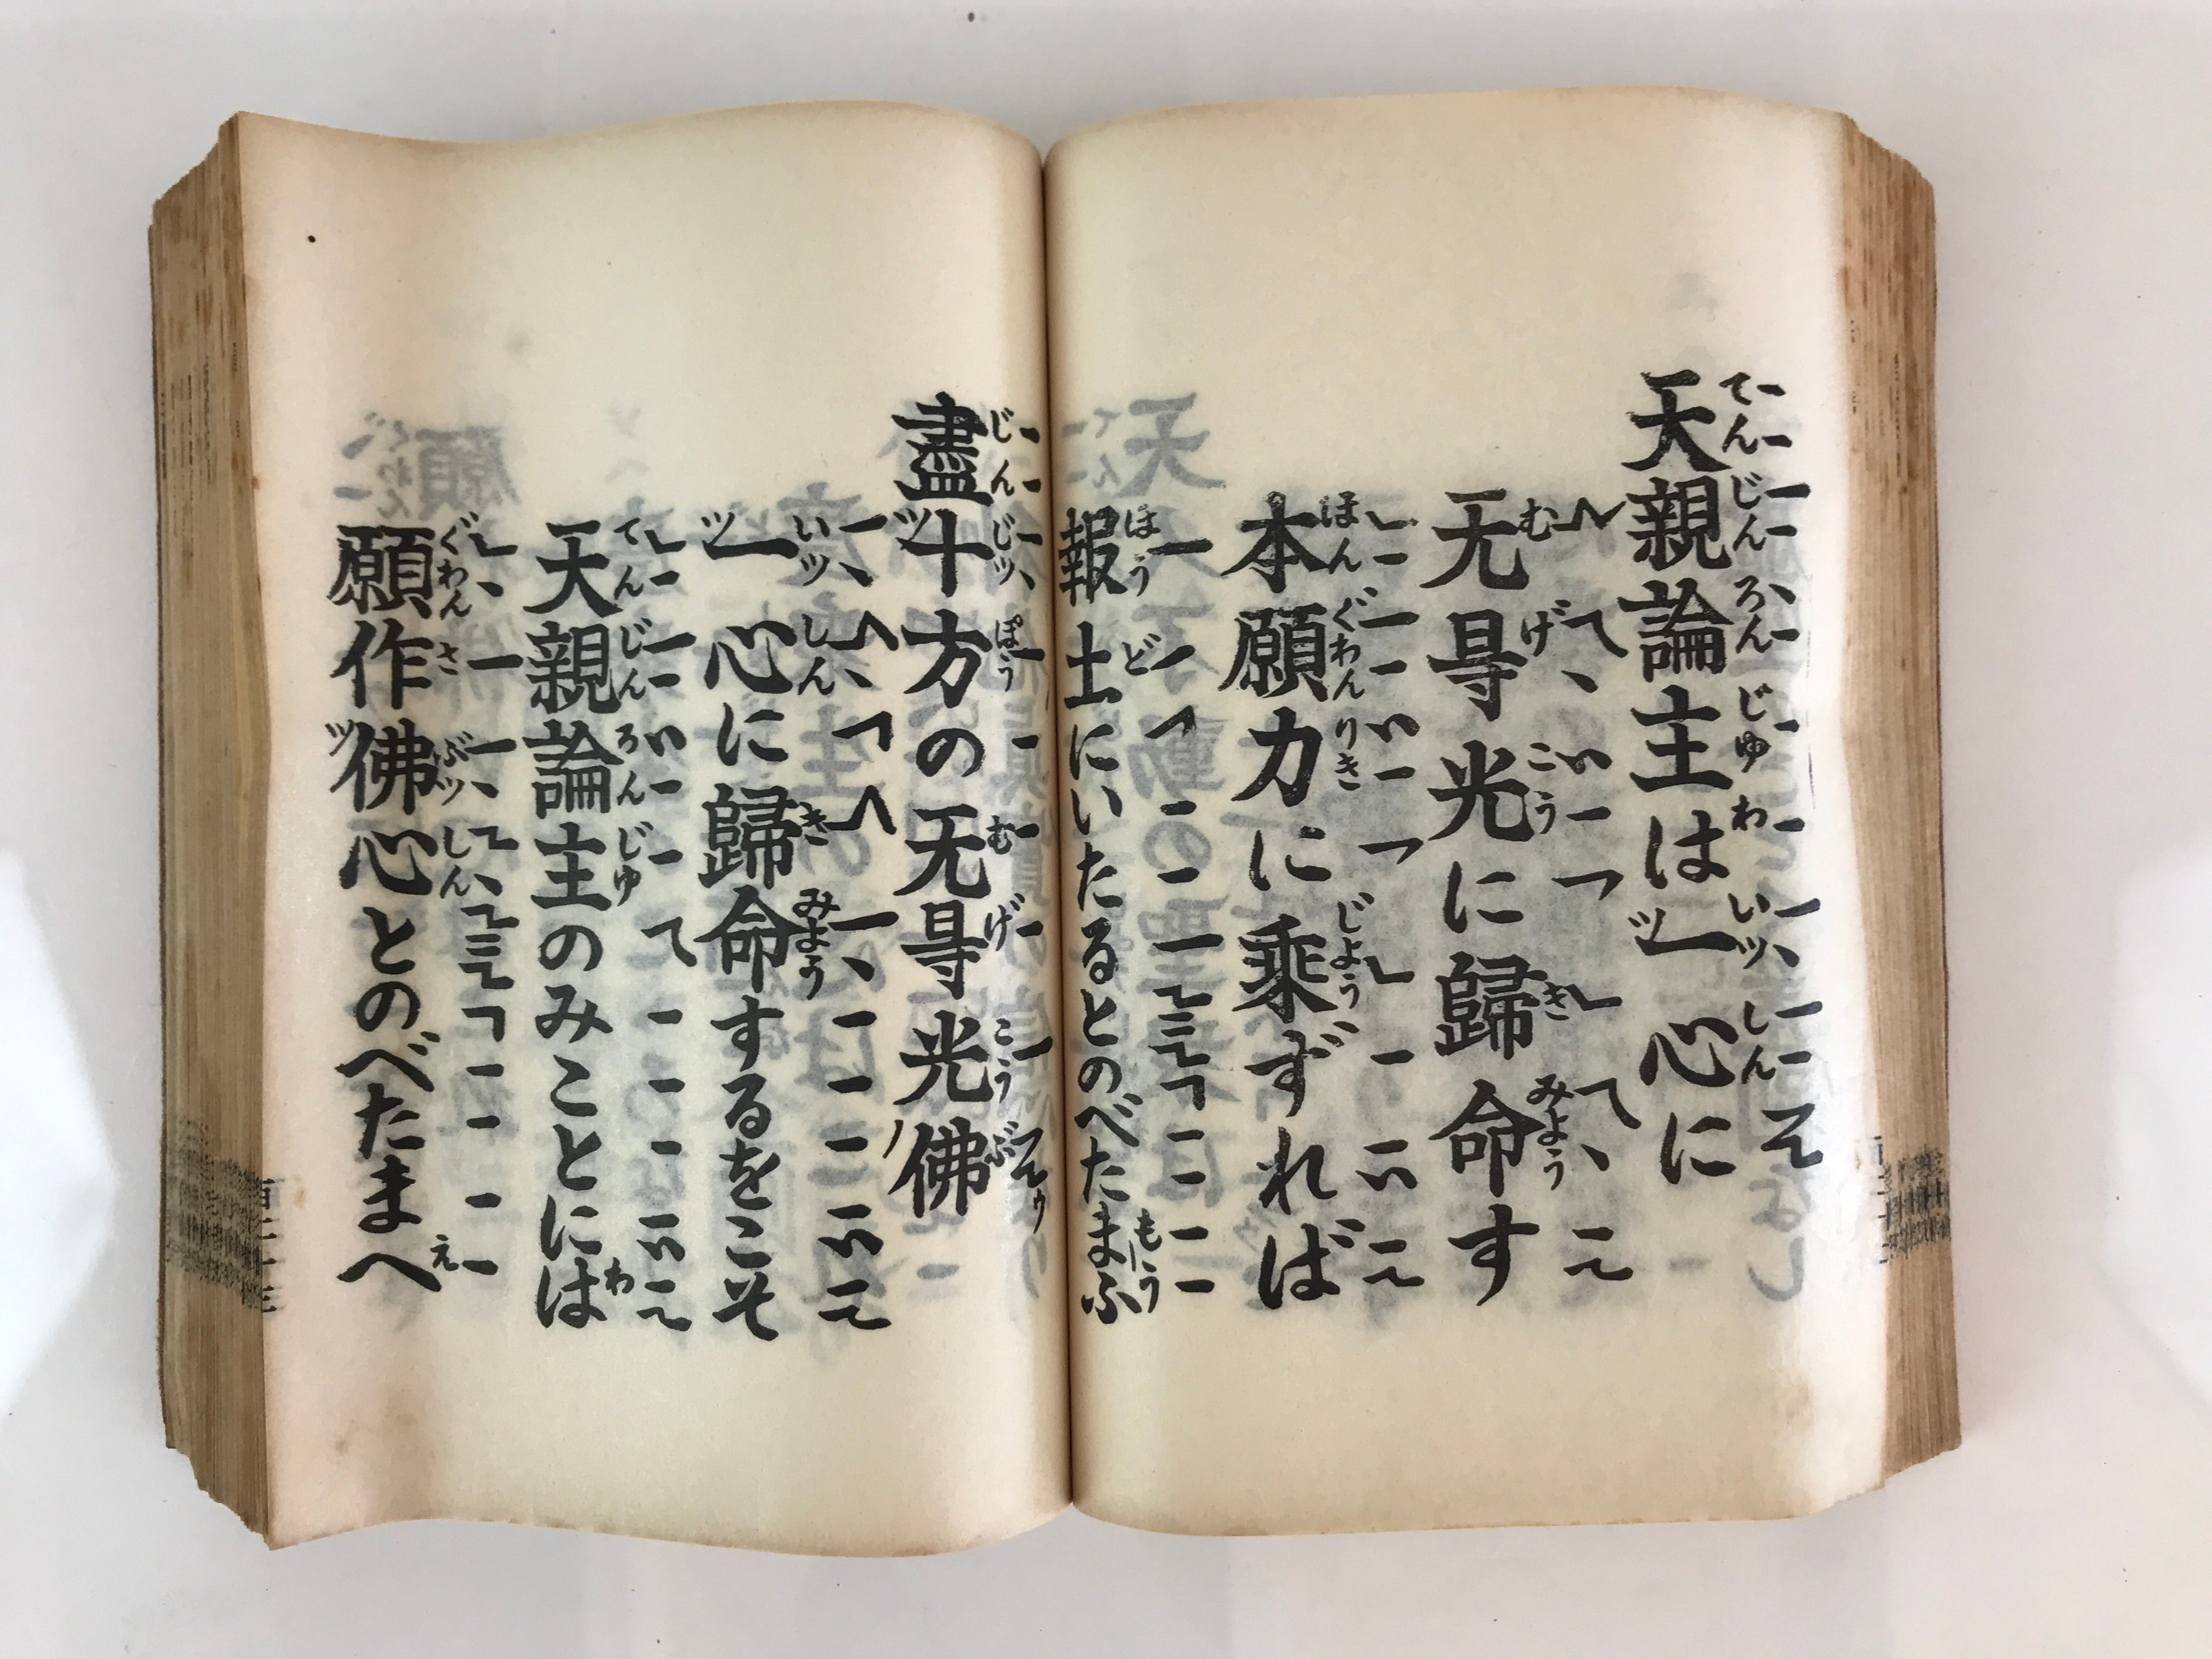 天親論主は一心に
无㝵光に歸命す
本願力に乘ずれば
報土にいたるとのべたまふ
盡十方の无㝵光佛
一心に歸命するをこそ
天親論主のみことには
願作佛心とのべたまへ